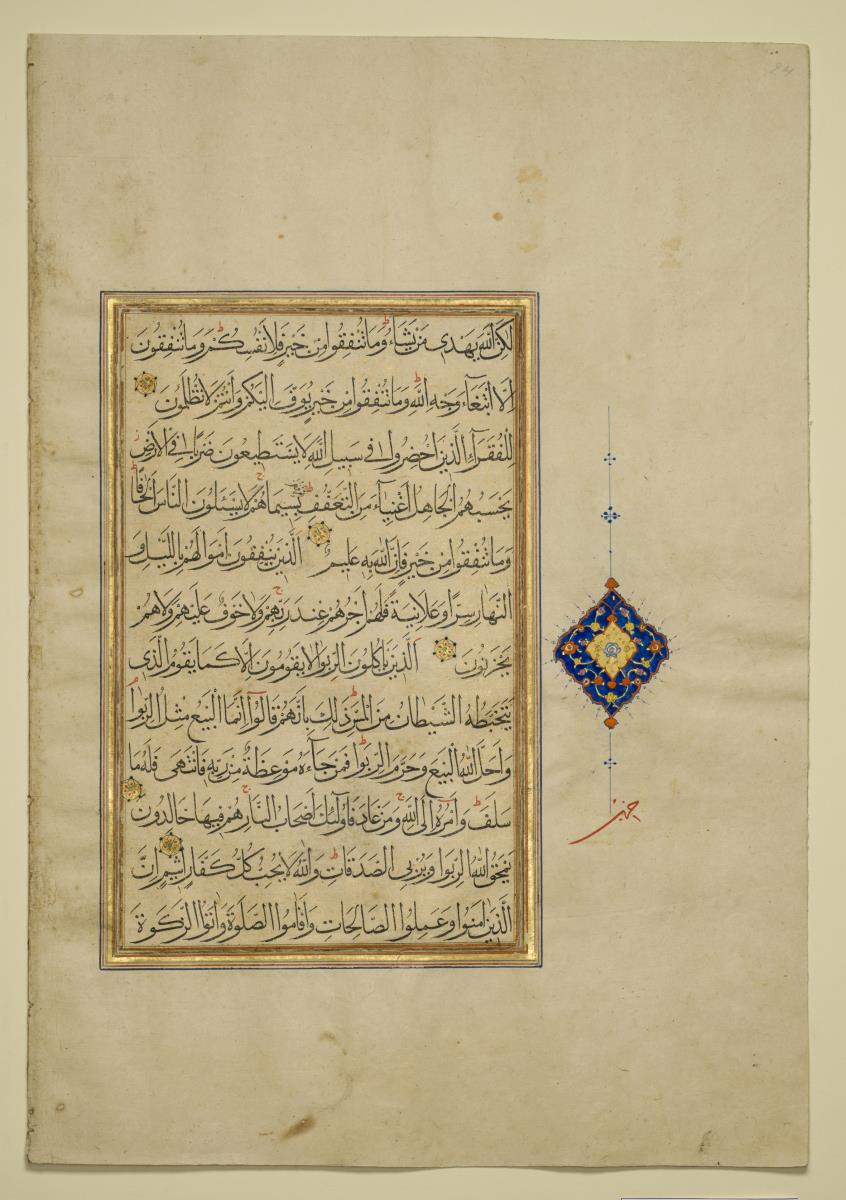 لَكِنَّ اللَّهَ يَهْدِي مَنْ يَشَاءُ وَمَا تُنْفِقُوا مِنْ خَيْرٍ فَلِأَنْفُسِكُمْ وَمَا تُنْفِقُونَ
إِلَّا ابْتِغَآءَ وَجْهِ اللَّهِ وَمَا تُنْفِقُوا مِنْ خَيْرٍ يُوَفَّ إِلَيْكُمْ وَأَنْتُمْ لَا تُظْلَمُونَ
لِلْفُقَرَآءِ الَّذِينَ أُحْصِرُوا فِي سَبِيلِ اللَّهِ لَا يَسْتَطِيعُونَ ضَرْبًا فِي الْأَرْضِ
يَحْسَبُهُمُ الْجَاهِلُ أَغْنِيَآءَ مِنَ التَّعَفُّفِ تَعْرِفُهُمْ بِسِيمَاهُمْ لَا يَسْئَلُونَ النَّاسَ إِلْحَافًا
وَمَا تُنْفِقُوا مِنْ خَيْرٍ فَإِنَّ اللَّهَ بِهِ عَلِيمٌ الَّذِينَ يُنْفِقُونَ أَمْوَالَهُمْ بِاللَّيْلِ وَ
النَّهَارِ سِرًّا وَعَلَانِيَةً فَلَهُمْ أَجْرُهُمْ عِنْدَ رَبِّهِمْ وَلَا خَوْفٌ عَلَيْهِمْ وَلَا هُمْ
يَحْزَنُونَ الَّذِينَ يَأْكُلُونَ الرِّبَوا لَا يَقُومُونَ إِلَّا كَمَا يَقُومُ الَّذِي
يَتَخَبَّطُهُ الشَّيْطَانُ مِنَ الْمَسِّ ذَلِكَ بِأَنَّهُمْ قَالُوا إِنَّمَا الْبَيْعُ مِثْلُ الرِّبَوا
وَأَحَلَّ اللَّهُ الْبَيْعَ وَحَرَّمَ الرِّبَوا فَمَنْ جَآءَهُ مَوْعِظَةٌ مِنْ رَبِّهِ فَانْتَهَى فَلَهُ مَا
سَلَفَ وَأَمْرُهُ إِلَى اللَّهِ وَمَنْ عَادَ فَأُولَئِكَ أَصْحَابُ النَّارِ هُمْ فِيهَا خَالِدُونَ
يَمْحَقُ اللَّهُ الرِّبَوا وَيُرْبِي الصَّدَقَاتِ وَاللَّهُ لَا يُحِبُّ كُلَّ كَفَّارٍ أَثِيمٍ إِنَّ
الَّذِينَ آمَنُوا وَعَمِلُوا الصَّالِحَاتِ وَأَقَامُوا الصَّلَوةَ وَآتَوُا الزَّكَوةَ